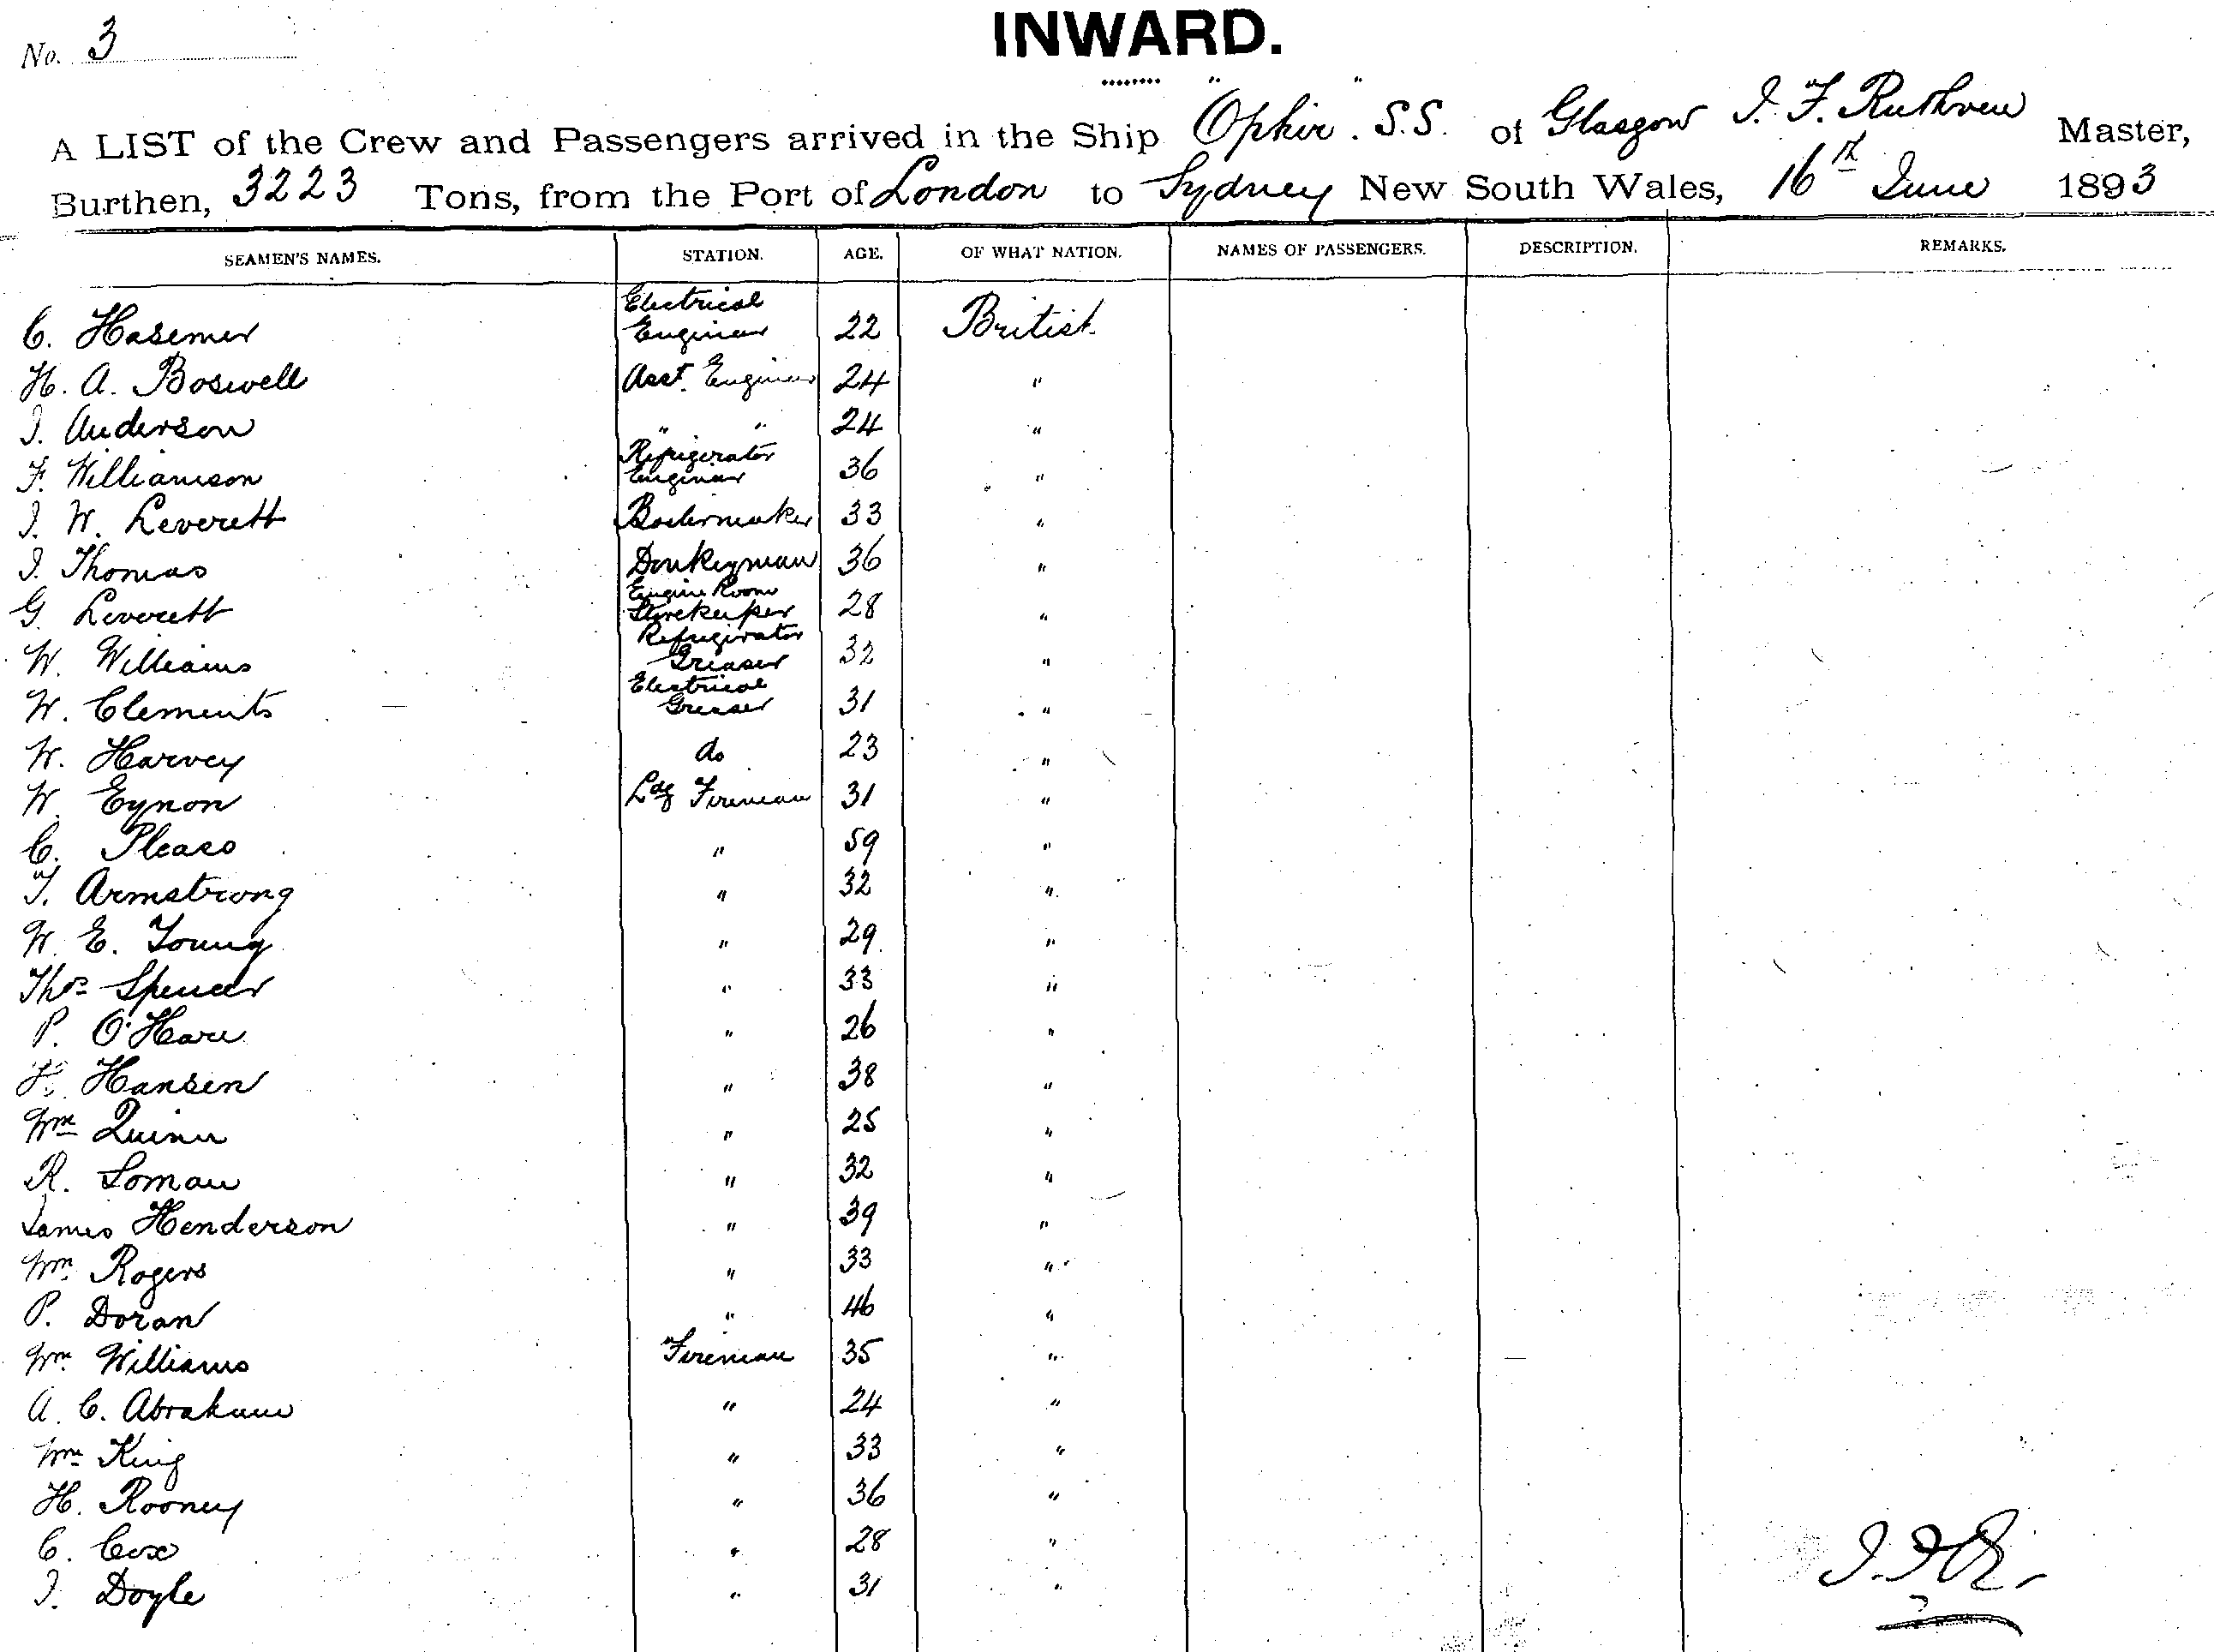 No. 3
INWARD.
A LIST of the Crew and Passengers arrived in the Ship "Ophir" S.S. of Glasgow J. F. Ruthven Master,
Burthen, 3223 Tons, from the Port of London to Sydney New South Wales, 16th June 1893
SEAMEN'S NAMES. STATION. AGE. OF WHAT NATION. NAMES OF PASSENGERS. DESCRIPTION. REMARKS.
C. Hasemer Electrical Engineer 22 British
H. A. Boswell Asst. Engineer 24 "
J. Anderson " " 24 "
F. Williamson Refrigerator Engineer 36 "
J. W. Leverett Boilermaker 33 "
J. Thomas Donkeyman 36 "
G. Leverett Engine Room Storekeeper 28 "
W. Williams Refrigerator Greaser 32 "
W. Clements Electrical Greaser 31 "
W. Harvey do 23 "
W. Eynon Ldg Fireman 31 "
C. Please " 59 "
T. Armstrong " 32 "
W. E. Young " 29 "
Thos Spencer " 33 "
P. O'Hare " 26 "
F. Hansen " 38 "
Wm Quinn " 25 "
R. Loman " 32 "
James Henderson " 39 "
Wm Rogers " 33 "
P. Doran " 46 "
Wm Williams Fireman 35 "
A. C. Abraham " 24 "
Wm King " 33 "
H. Rooney " 36 "
C. Cox " 28 "
J. Doyle " 31 "
J.F.R.